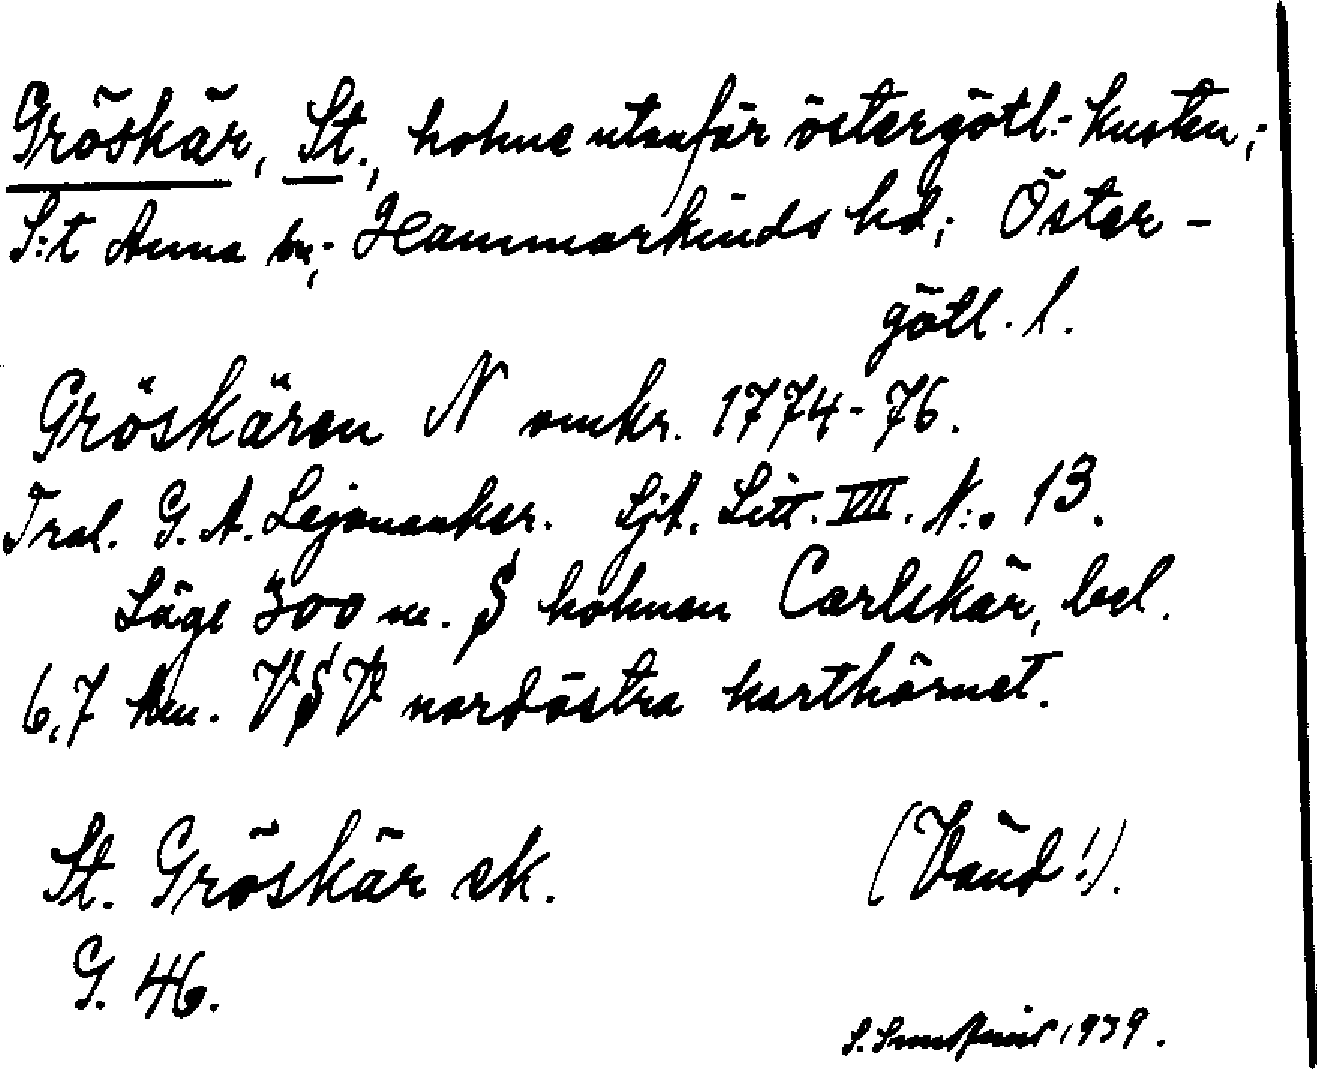 Gröskär, St., holme utanför östergötl.-kusten;
S:t Anna sn; Hammarkinds hd; Öster-
götl. l.
Gröskären N omkr. 1774-76.
Tral. G. A. Lejonanker. Sjk. Litt. VIII. N:o 13.
Läge 300 m. S holmen Carlskär, bel.
6,7 km. VSV nordöstra karthörnet.
St. Gröskär ek.
(Vänd!).
G. 46.
1939.